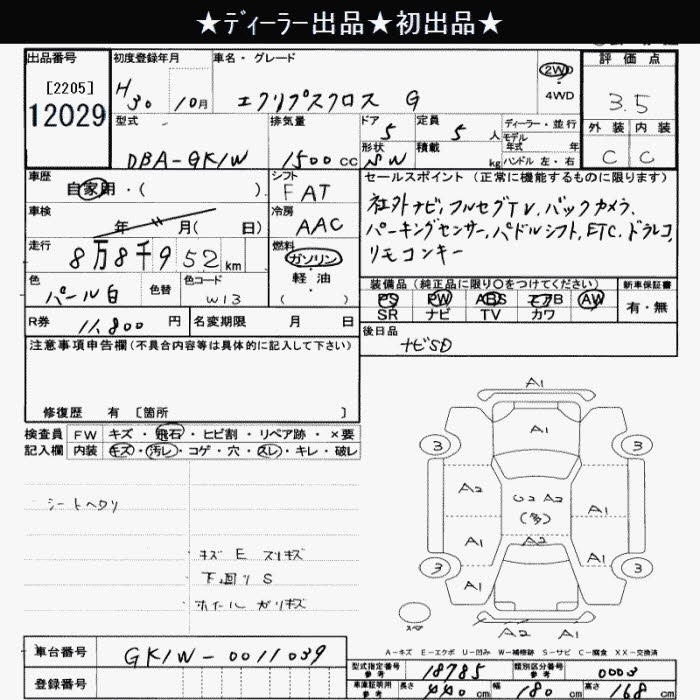 ★ディーラー出品★初出品★
出品番号
[2205]
12029
初度登録年月
H30 10月
車名・グレード
エクリプスクロス G
2WD
4WD
評価点
3.5
外装 内装
C C
型式
DBA-GK1W
排気量
1500 CC
ドア
5
形状
SW
定員
5 人
積載
kg
ディーラー・並行
モデル
年式 年
ハンドル 左・右
車歴
自家用・( )
シフト
FAT
車検
年 月( 日)
冷房
AAC
走行
8万8千952 km
燃料
ガソリン
軽油
( )
色
パール白
色替
色コード
W13
R券
11,800 円
名変期限 月 日
セールスポイント (正常に機能するものに限ります)
社外ナビ、フルセグTV、バックカメラ、
パーキングセンサー、パドルシフト、ETC、ドラレコ
リモコンキー
装備品 (純正品に限り○をつけてください)
PS PW ABS エアB AW
SR ナビ TV カワ
新車保証書
有・無
後日品
ナビSD
注意事項申告欄 (不具合内容等は具体的に記入して下さい)
修復歴 有 [箇所 ]
検査員
記入欄
FW キズ・飛石・ヒビ割・リペア跡・×要
内装 キズ・汚レ・コゲ・穴・スレ・キレ・破レ
シートヘタリ
キズ E スリキズ
下回り S
ホイールガリキズ
A1
A1
3
3
A2
A2
(多)
A1
A1
A1
A2
3
3
A1
A1
スペア
A2 A1
A-キズ E-エクボ U-凹み W-補修跡 S-サビ C-腐食 XX-交換済
車台番号
GK1W-0011039
登録番号
型式指定番号
参考
18785
類別区分番号
参考
0003
車庫証明用
参考
長さ 440 cm 幅 180 cm 高さ 168 cm